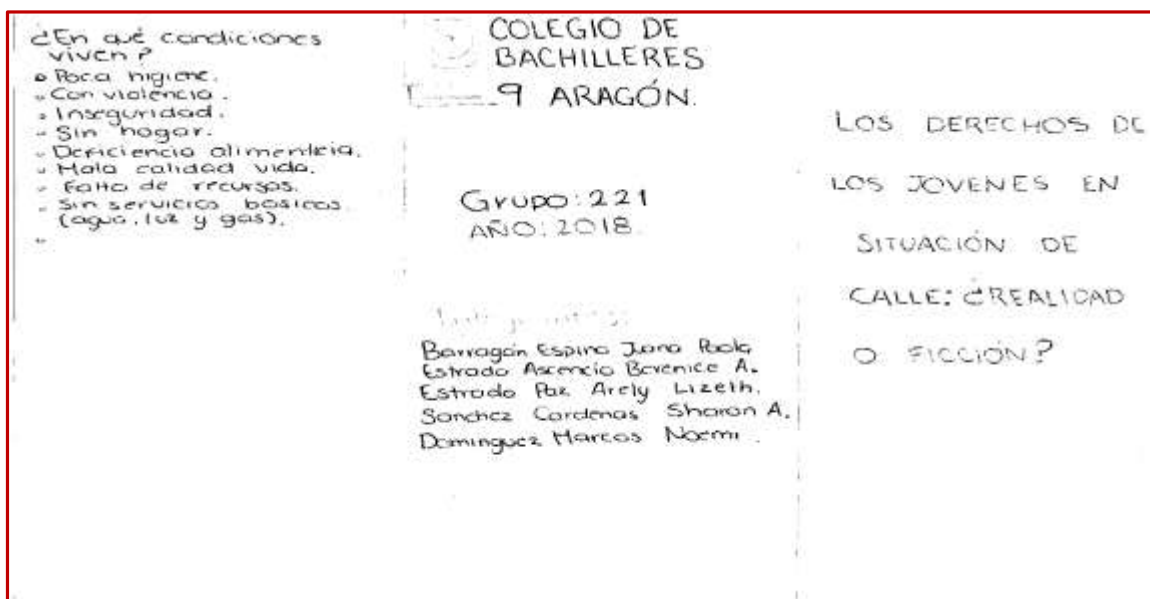 ¿En qué condiciones
viven?
Poca higiene.
Con violencia.
Inseguridad.
- Sin hogar.
- Deficiencia alimenticia.
Mala calidad vida.
- Falta de recursos.
- Sin servicios basicos.
(agua, luz y gas).
COLEGIO DE
BACHILLERES
9 ARAGÓN.
Grupo: 221
AÑO: 2018.
Integrantes:
Barragán Espino Juana Paola
Estrada Ascencio Berenice A.
Estrada Paz Arely Lizeth.
Sanchez Cardenas Sharon A.
Dominguez Marcos Noemi.
LOS DERECHOS DE
LOS JOVENES EN
SITUACIÓN DE
CALLE: ¿REALIDAD
O FICCIÓN?